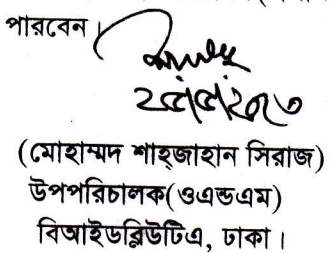 পারবেন।
(মোহাম্মদ শাহ্জাহান সিরাজ)
উপপরিচালক(ওএন্ডএম)
বিআইডব্লিউটিএ, ঢাকা।